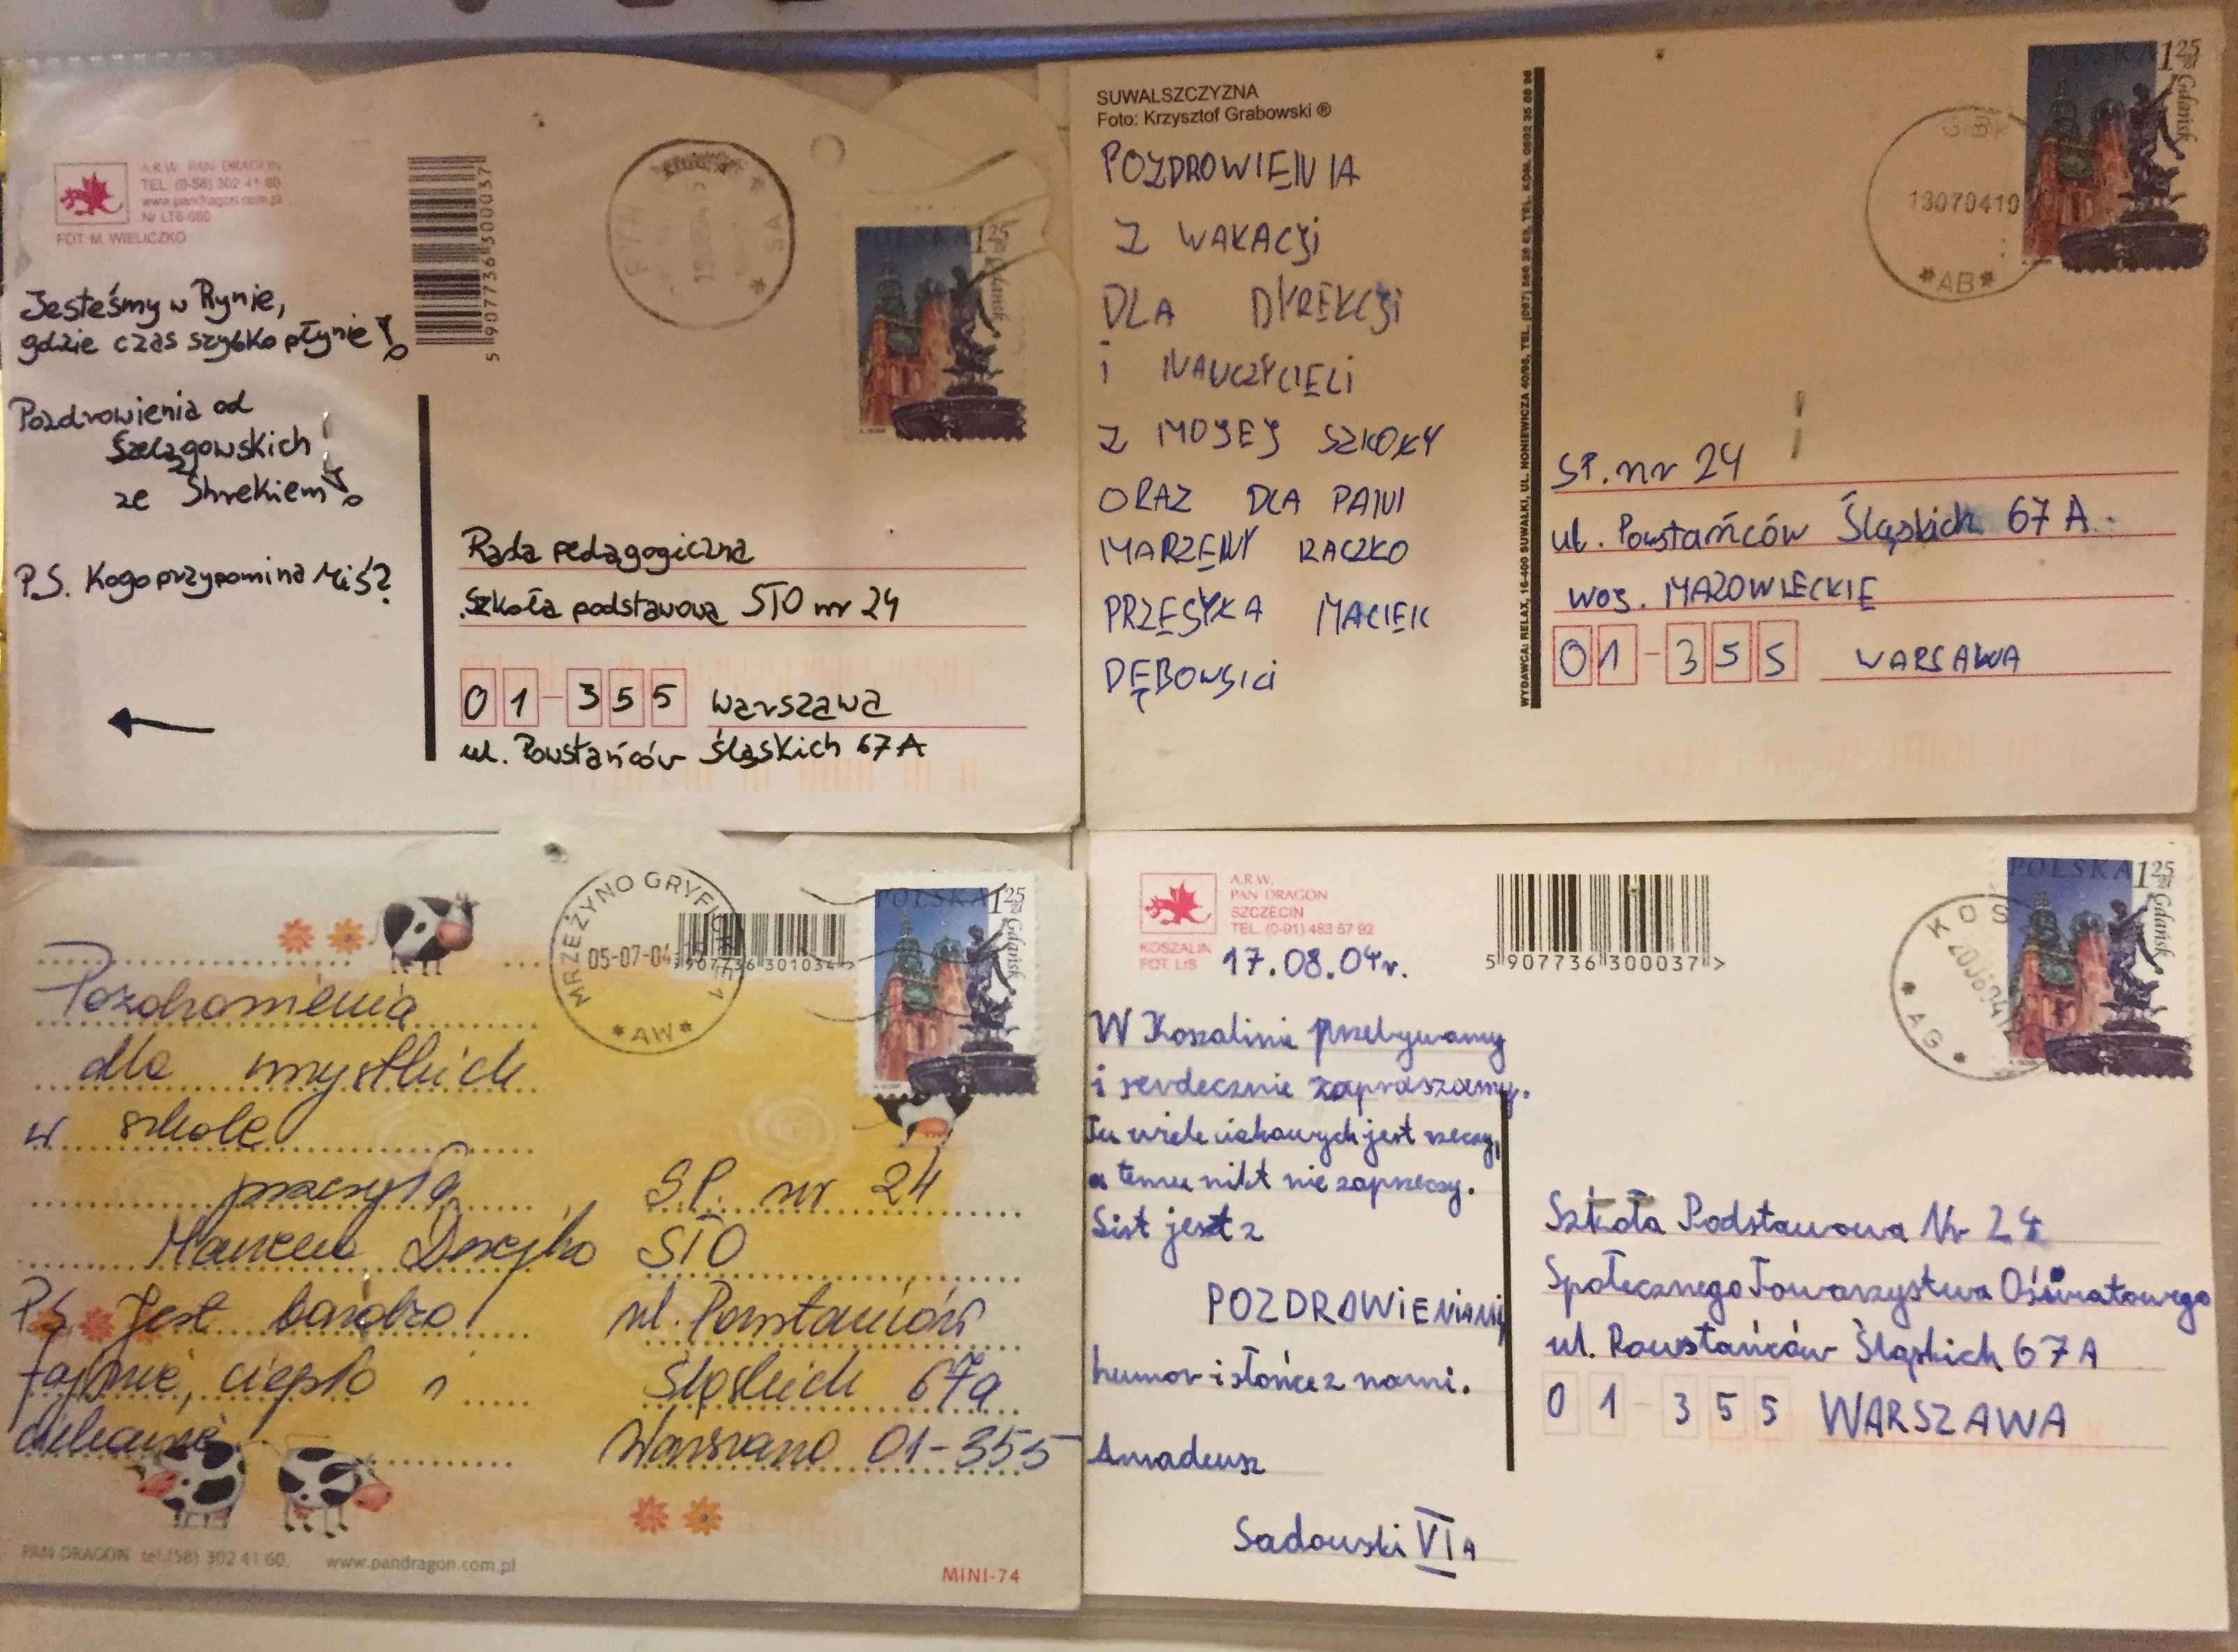 A.R.W. PAN DRAGON
TEL. (0-58) 302 41 60
www.pandragon.com.pl
Nr LT6-680
FOT. M. WIELICZKO
5 907736 300037
Jesteśmy w Rynie,
gdzie czas szybko płynie!
Pozdrowienia od
Szelągowskich
ze Shrekiem!
P.S. Kogo przypomina Miś?
POLSKA 1 25 zł
Gdańsk
Rada pedagogiczna
Szkoła podstawowa STO nr 24
01-355 Warszawa
ul. Powstańców Śląskich 67A
SUWALSZCZYZNA
Foto: Krzysztof Grabowski ®
POZDROWIENIA
Z WAKACJi
DLA DYREKCJi
i NAUCZYCIELi
Z MOJEJ SZKOŁY
ORAZ DLA PANI
MARZENY RACZKO
PRZESYŁA MACIEK
DĘBOWSKi
WYDAWCA: RELAX, 16-400 SUWAŁKI, UL. NONIEWICZA
POLSKA 1 25 zł
Gdańsk
GIBY
13070410
*AB*
SP. nr 24
ul. Powstańców Śląskich 67A.
woj. MAZOWIECKIE
01-355 WARSAWA
MRZEŻYNO GRYFICKIE 1
05-07-04
*AW*
907736 301034>
POLSKA 1 25 zł
Gdańsk
Pozdrowienia
dla wszystkich
w szkole
przesyła
P.S. Jest bardzo
fajnie, ciepło i
ciekawie
S.P. nr 24
STO
ul. Powstańców
Śląskich 67a
Warszawa 01-355
PAN DRAGON tel.(58) 302 41 60. www.pandragon.com.pl
MINI-74
A.R.W.
PAN DRAGON
SZCZECIN
TEL. (0-91) 483 57 92
KOSZALIN
FOT. LIS
17.08.04r.
5 907736 300037 >
POLSKA 1 25 zł
Gdańsk
KOS
*AG*
W Koszalinie przebywamy
i serdecznie zapraszamy.
Tu wiele ciekawych jest rzeczy,
a temu nikt nie zaprzeczy.
List jest z
POZDROWIENIAMI,
humor i słońce z nami.
Amadeusz
Sadowski VI A
Szkoła Podstawowa Nr 24
Społecznego Towarzystwa Oświatowego
ul. Powstańców Śląskich 67A
01-355 WARSZAWA